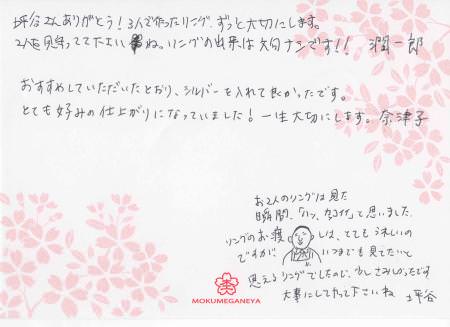 坪谷さんありがとう！3人で作ったリング、ずっと大切にします。
2人を見守っててくださいね。リングの出来は文句ナシです!! 潤一郎
おすすめしていただいたとおり、シルバーを入れて良かったです。
とても好みの仕上がりになっていました！一生大切にします。奈津子
お2人のリングは見た
瞬間、「ハッ、カッコイイ」と思いました。
リングのお渡しは、とてもうれしいの
ですが いつまでも見てたいと
思えるリングでしたので、少しさみしかったです
大事にしてやって下さいね 坪谷
MOKUMEGANEYA